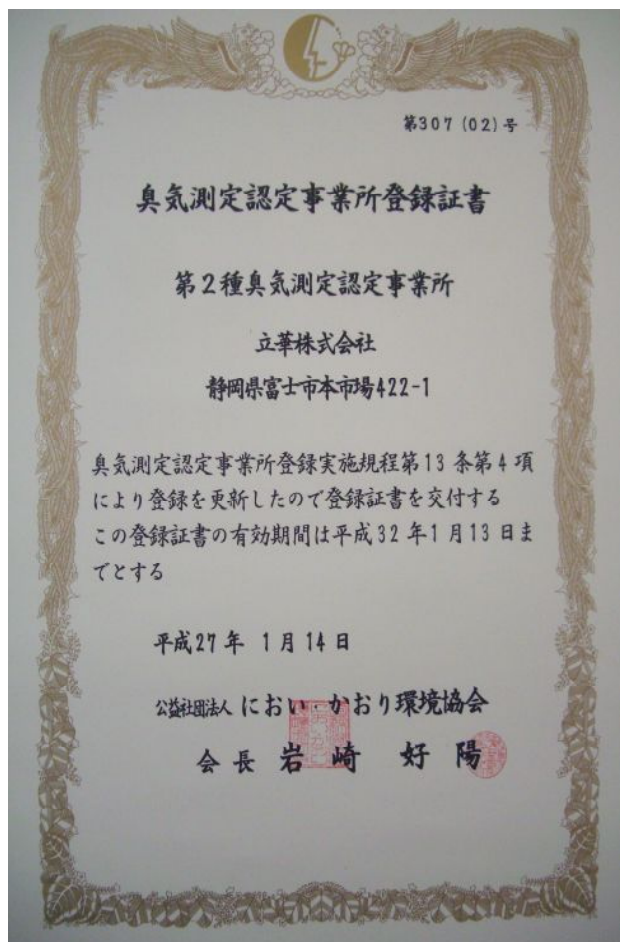 第307(02)号
臭気測定認定事業所登録証書
第2種臭気測定認定事業所
立華株式会社
静岡県富士市本市場422-1
臭気測定認定事業所登録実施規程第13条第4項
により登録を更新したので登録証書を交付する
この登録証書の有効期間は平成32年1月13日ま
でとする
平成27年 1月14日
公益社団法人 におい・かおり環境協会
会長 岩崎 好陽